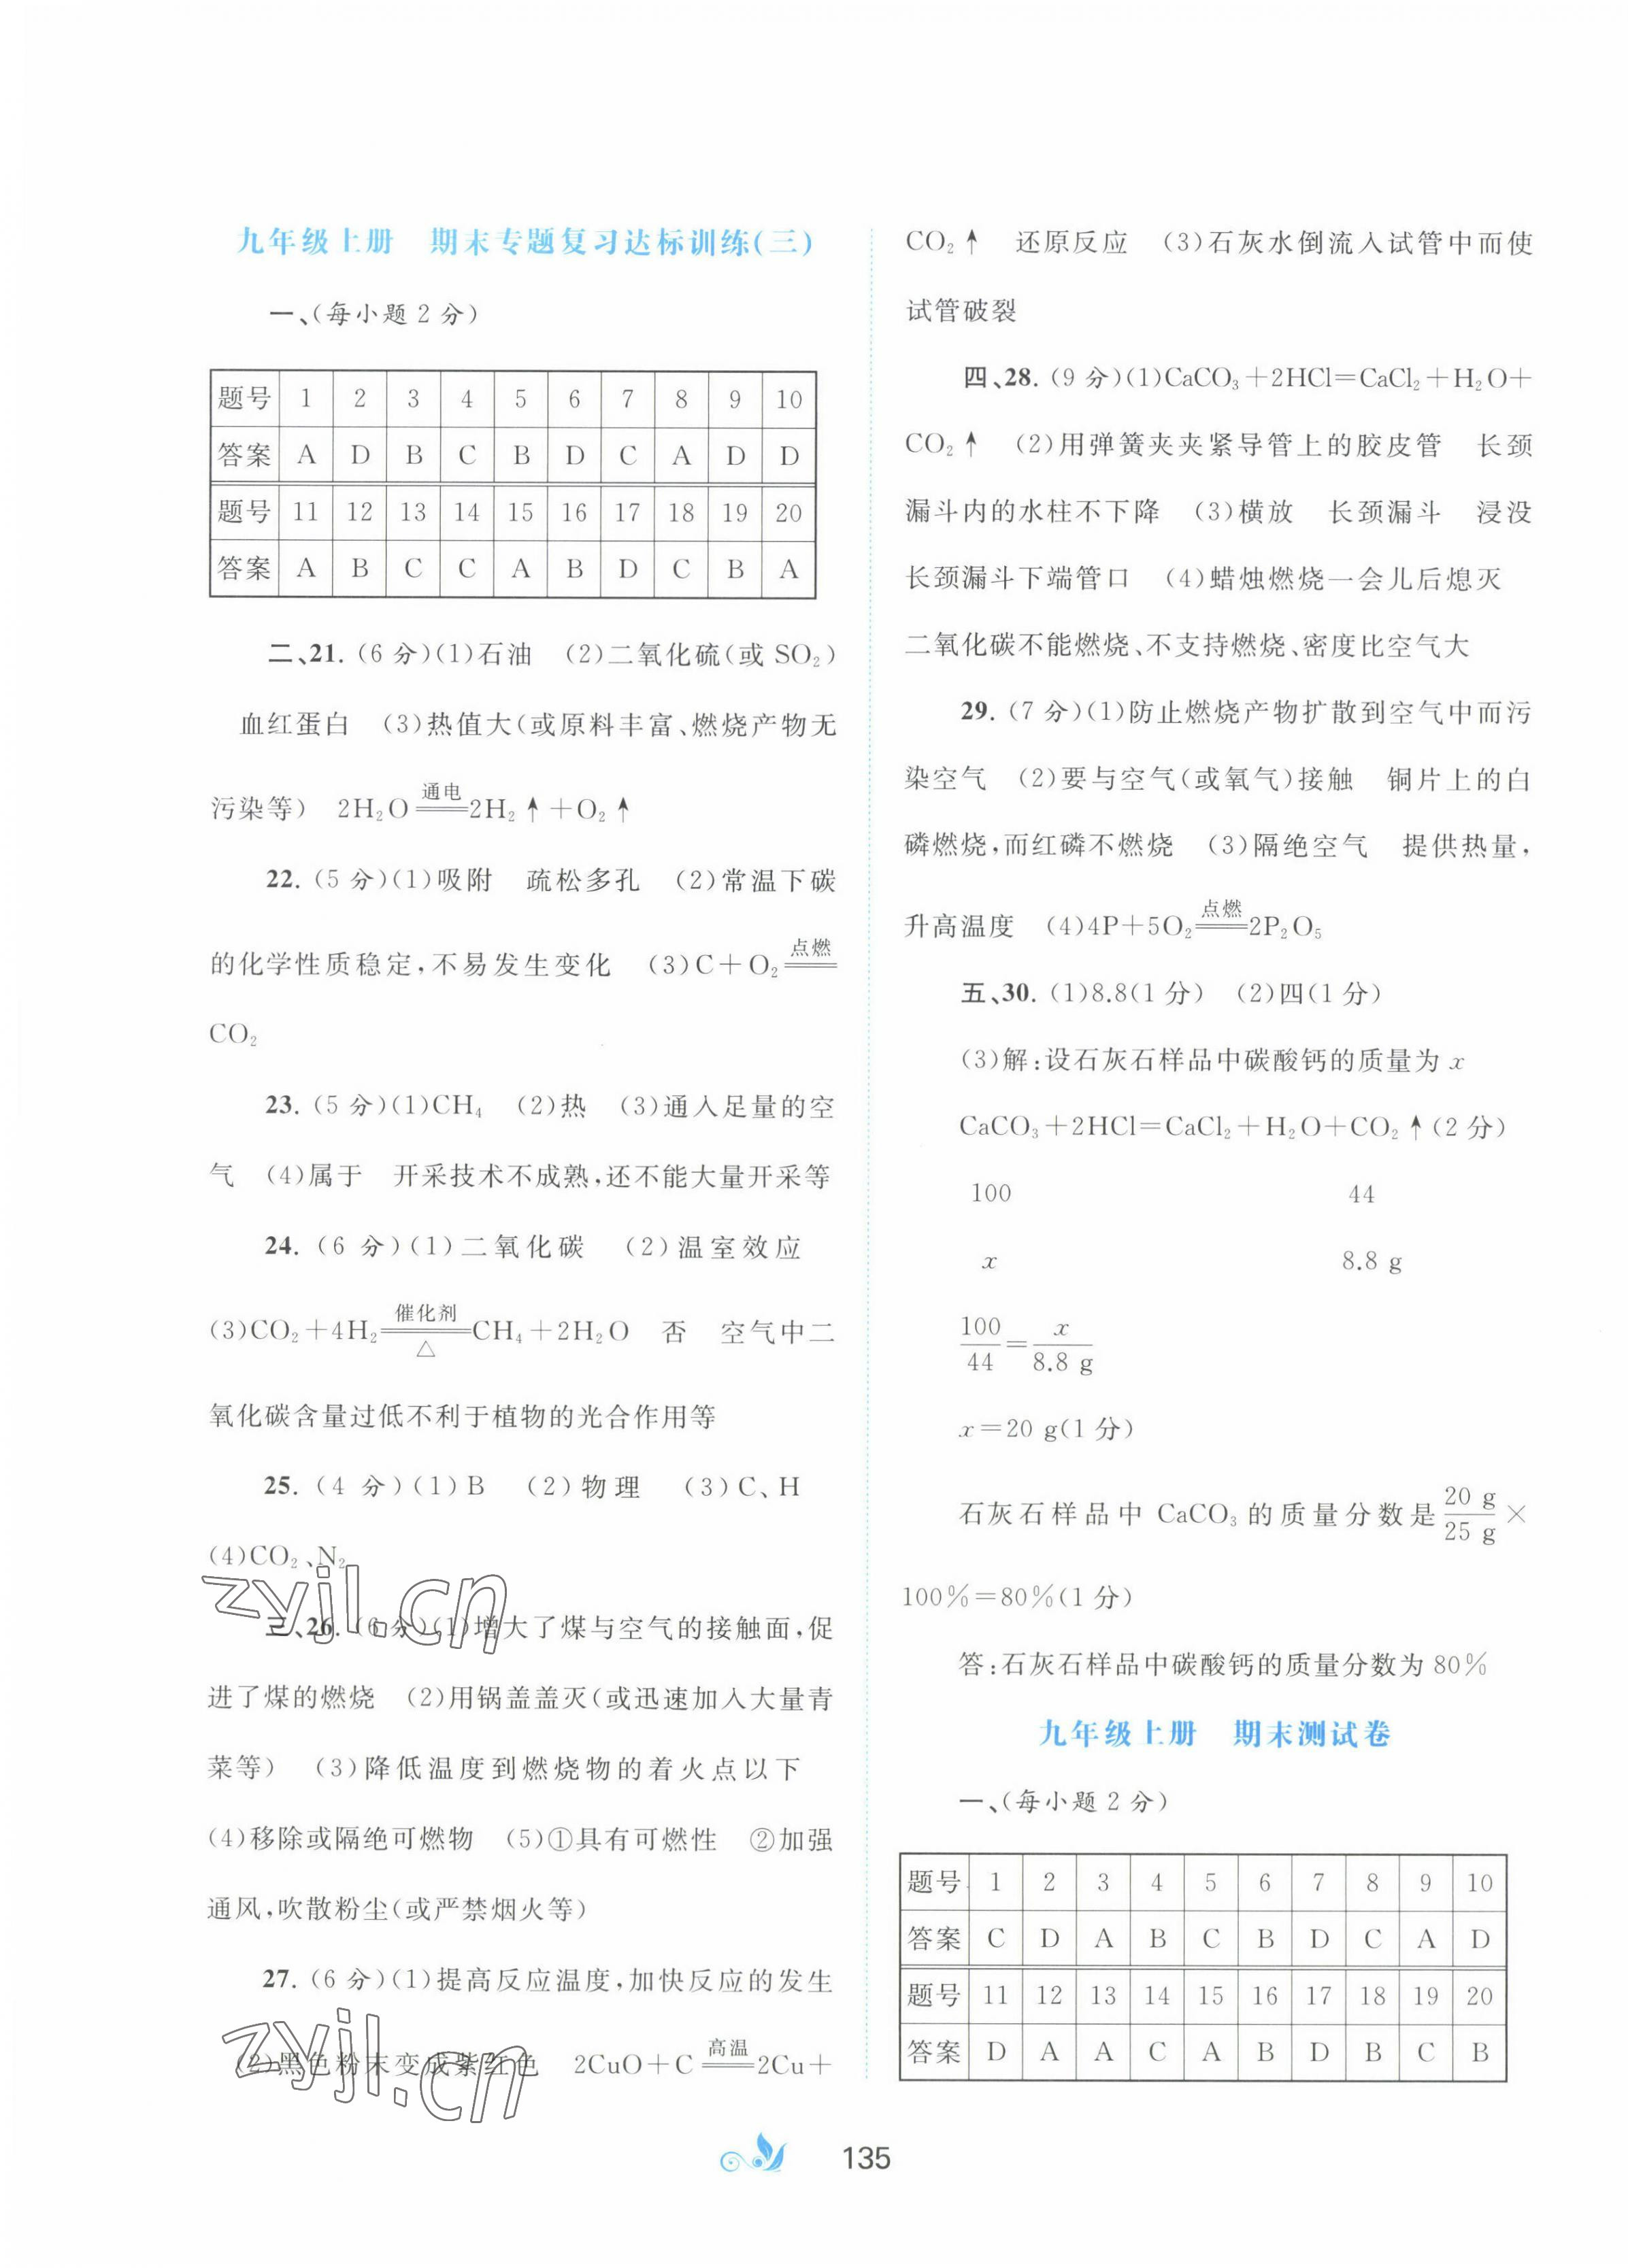 九年级上册　期末专题复习达标训练(三)
一、(每小题 2 分)
题号 1 2 3 4 5 6 7 8 9 10
答案 A D B C B D C A D D
题号 11 12 13 14 15 16 17 18 19 20
答案 A B C C A B D C B A
二、21. (6 分)(1)石油　(2)二氧化硫(或 SO₂)
血红蛋白　(3)热值大(或原料丰富、燃烧产物无
污染等)　2H₂O 通电══ 2H₂↑+O₂↑
22. (5 分)(1)吸附　疏松多孔　(2)常温下碳
的化学性质稳定,不易发生变化　(3)C+O₂ 点燃══
CO₂
23. (5 分)(1)CH₄　(2)热　(3)通入足量的空
气　(4)属于　开采技术不成熟,还不能大量开采等
24. (6 分)(1)二氧化碳　(2)温室效应
(3)CO₂+4H₂ 催化剂══△ CH₄+2H₂O　否　空气中二
氧化碳含量过低不利于植物的光合作用等
25. (4 分)(1)B　(2)物理　(3)C、H
(4)CO₂、N₂
三、26. (6 分)(1)增大了煤与空气的接触面,促
进了煤的燃烧　(2)用锅盖盖灭(或迅速加入大量青
菜等)　(3)降低温度到燃烧物的着火点以下
(4)移除或隔绝可燃物　(5)①具有可燃性　②加强
通风,吹散粉尘(或严禁烟火等)
27. (6 分)(1)提高反应温度,加快反应的发生
(2)黑色粉末变成紫红色　2CuO+C 高温══ 2Cu+
zyjl.cn
zyjl.cn
CO₂↑　还原反应　(3)石灰水倒流入试管中而使
试管破裂
四、28. (9 分)(1)CaCO₃+2HCl=CaCl₂+H₂O+
CO₂↑　(2)用弹簧夹夹紧导管上的胶皮管　长颈
漏斗内的水柱不下降　(3)横放　长颈漏斗　浸没
长颈漏斗下端管口　(4)蜡烛燃烧一会儿后熄灭
二氧化碳不能燃烧、不支持燃烧、密度比空气大
29. (7 分)(1)防止燃烧产物扩散到空气中而污
染空气　(2)要与空气(或氧气)接触　铜片上的白
磷燃烧,而红磷不燃烧　(3)隔绝空气　提供热量,
升高温度　(4)4P+5O₂ 点燃══ 2P₂O₅
五、30. (1)8.8(1 分)　(2)四(1 分)
(3)解:设石灰石样品中碳酸钙的质量为 x
CaCO₃+2HCl=CaCl₂+H₂O+CO₂↑(2 分)
100　44
x　8.8 g
100/44=x/8.8 g
x=20 g(1 分)
石灰石样品中 CaCO₃ 的质量分数是 20 g/25 g ×
100%=80%(1 分)
答:石灰石样品中碳酸钙的质量分数为 80%
九年级上册　期末测试卷
一、(每小题 2 分)
题号 1 2 3 4 5 6 7 8 9 10
答案 C D A B C B D C A D
题号 11 12 13 14 15 16 17 18 19 20
答案 D A A C A B D B C B
135